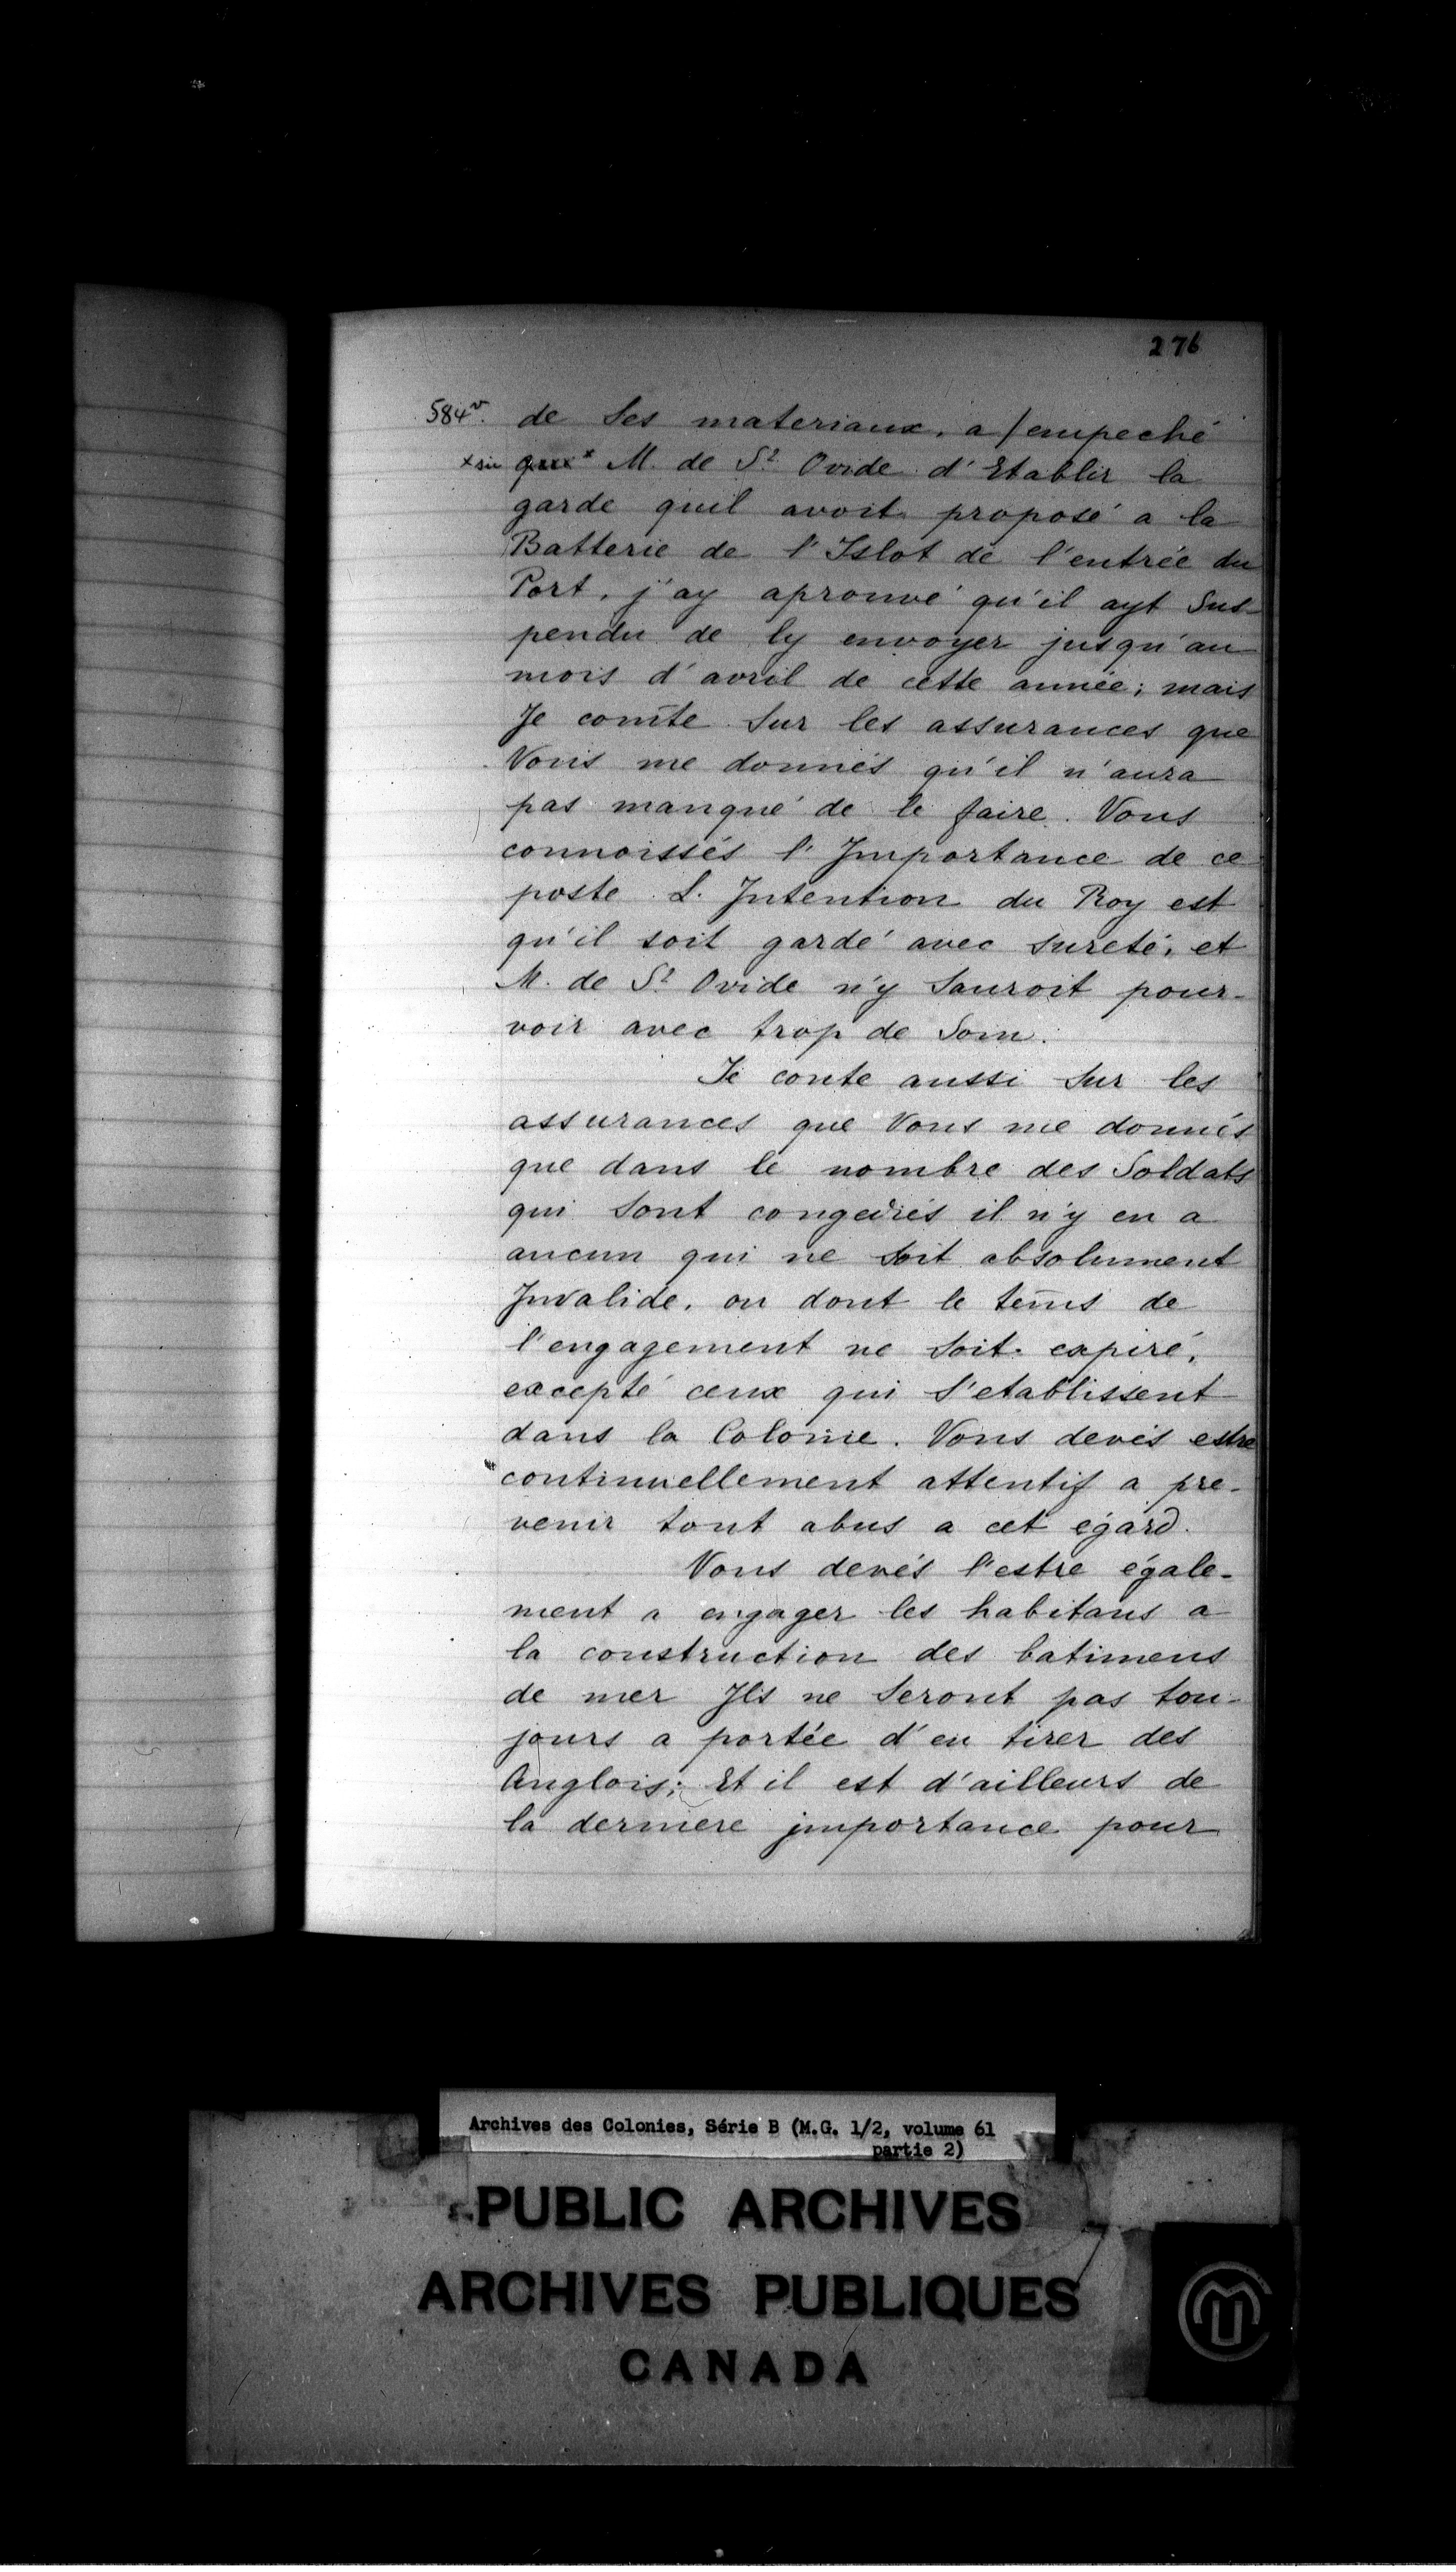 276
584v. de Ses materiaux, a / empeché
x sic que x M. de St Ovide d'Etablir la
garde quil avoit proposé a la
Batterie de l'Islot de l'entrée du
Port, j'ay aprouvé qu'il ayt Sus-
pendu de ly envoyer jusqu'au
mois d'avril de cette année; mais
Je comte Sur les assurances que
Vous me donnés qu'il n'aura
pas manqué de le faire. Vous
connoissés l'Importance de ce
poste L'Intention du Roy est
qu'il soit gardé avec sureté, et
M. de St Ovide n'y Sauroit pour-
voir avec trop de Soin.
Je conte aussi Sur les
assurances que Vous me donnés
que dans le nombre des Soldats
qui Sont congediés il n'y en a
aucun qui ne Soit absolument
Invalide, ou dont le tems de
l'engagement ne Soit expiré,
excepté ceux qui S'etablissent
dans la Colonie. Vous devés estre
continuellement attentif a pre-
venir tout abus a cet égard.
Vous devés l'estre égale-
ment a engager les habitans a
la construction des batimens
de mer Ils ne Seront pas tou-
jours a portée d'en tirer des
Anglois; Et il est d'ailleurs de
la derniere importance pour
Archives des Colonies, Série B (M.G. 1/2, volume 61
partie 2)
PUBLIC ARCHIVES
ARCHIVES PUBLIQUES
CANADA